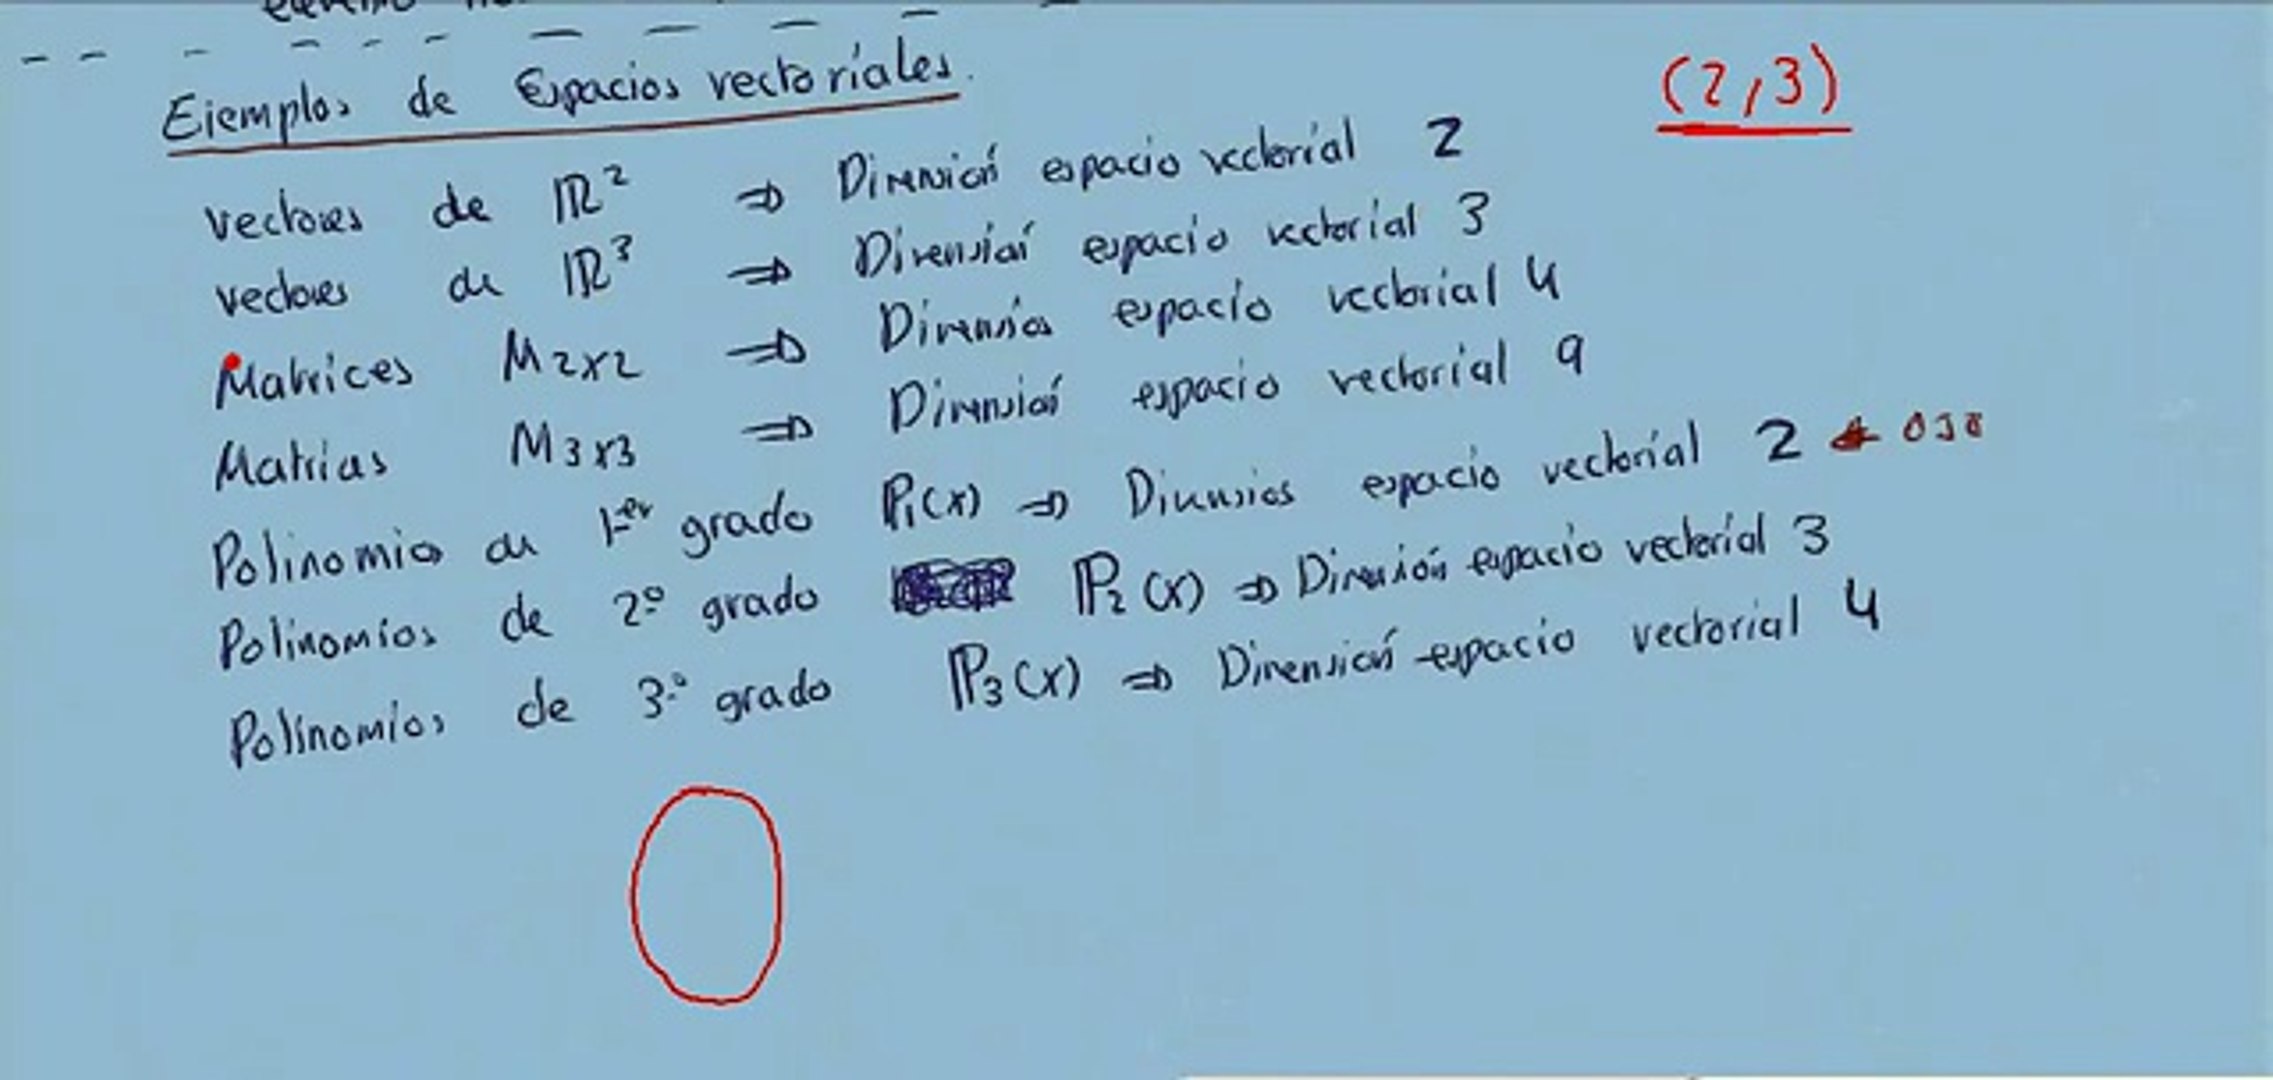 Ejemplos de Espacios vectoriales.
(2,3)
vectores de ℝ² ⇒ Dimensión espacio vectorial 2
vectores de ℝ³ ⇒ Dimensión espacio vectorial 3
Matrices M2x2 ⇒ Dimensión espacio vectorial 4
Matrices M3x3 ⇒ Dimensión espacio vectorial 9
Polinomios de 1er grado P₁(x) ⇒ Dimensión espacio vectorial 2 ← OJO
Polinomios de 2º grado ℙ₂(x) ⇒ Dimensión espacio vectorial 3
Polinomios de 3º grado ℙ₃(x) ⇒ Dimensión espacio vectorial 4